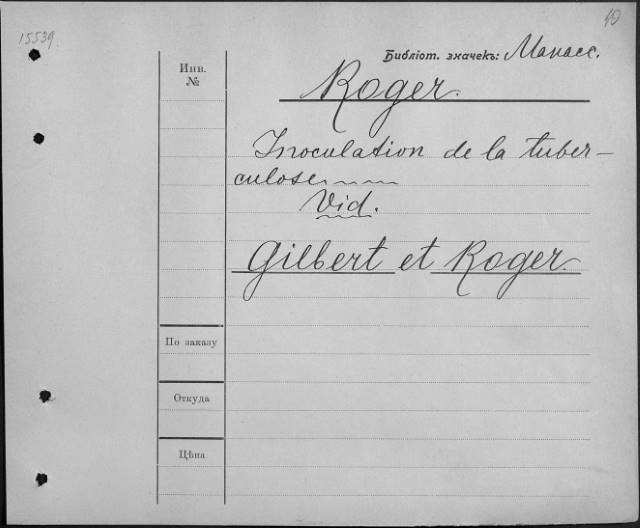 15539
40
Библіот. значекъ: Манасс.
Инв.
№
Roger.
Inoculation de la tuber-
culose
Vid.
Gilbert et Roger.
По заказу
Откуда
Цѣна